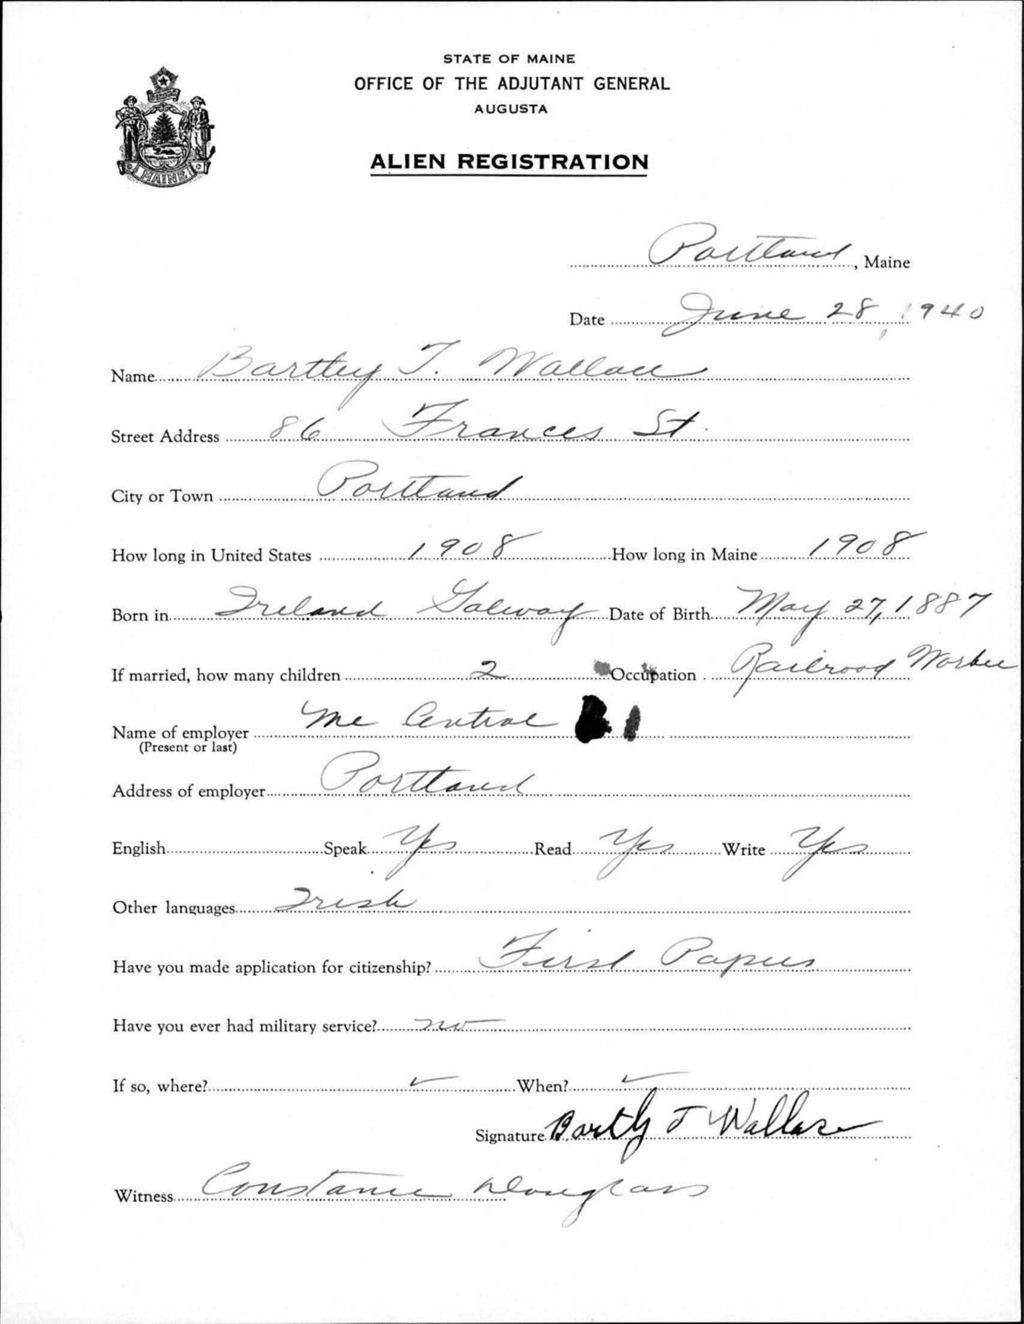 STATE OF MAINE
OFFICE OF THE ADJUTANT GENERAL
AUGUSTA
ALIEN REGISTRATION
MAINE
Portland, Maine
Date June 28, 1940
Name Bartley T. Wallace
Street Address 86 Frances St.
City or Town Portland
How long in United States 1908 How long in Maine 1908
Born in Ireland Galway Date of Birth May 27, 1887
If married, how many children 2 Occupation Railroad Worker
Name of employer Me Central
(Present or last)
Address of employer Portland
English Speak Yes Read Yes Write Yes
Other languages Irish
Have you made application for citizenship? First Papers
Have you ever had military service? no
If so, where? ✓ When? ✓
Signature Bartly T Wallace
Witness Constance Douglass